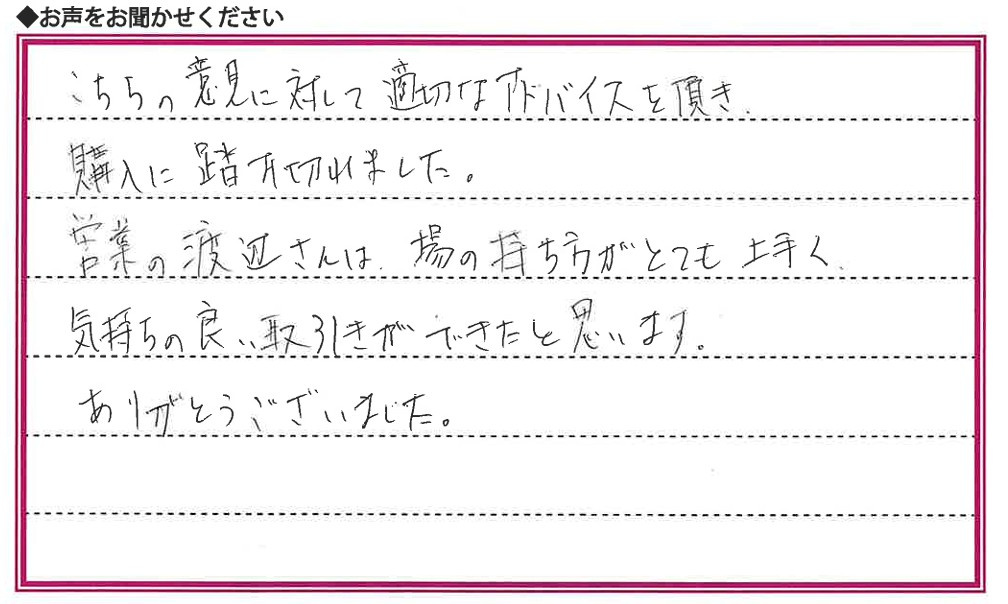 ◆お声をお聞かせください
こちらの意見に対して適切なアドバイスを頂き、
購入に踏み切れました。
営業の渡辺さんは、場の持ち方がとても上手く、
気持ちの良い取引きができたと思います。
ありがとうございました。